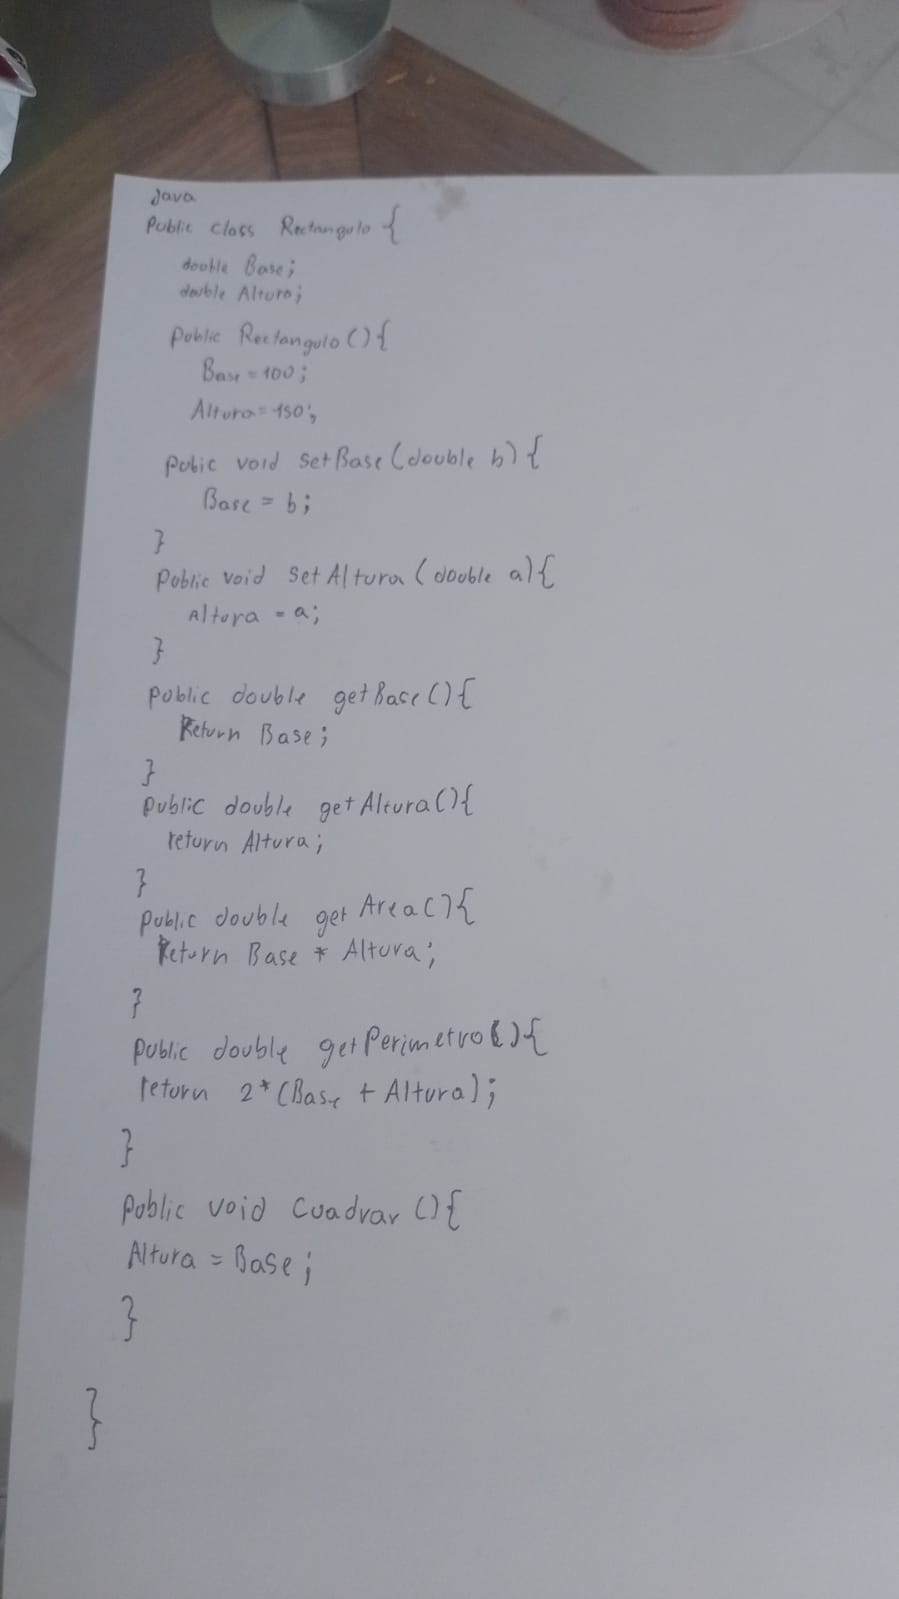 Java
Public class Rectangulo {
double Base;
double Altura;
public Rectangulo(){
Base = 100;
Altura = 150;
pubic void setBase(double b) {
Base = b;
}
public void setAltura (double a){
Altura = a;
}
public double getBase(){
Return Base;
}
public double getAltura(){
return Altura;
}
public double getArea(){
Return Base * Altura;
}
public double getPerimetro(){
return 2*(Base + Altura);
}
public void Cuadrar (){
Altura = Base;
}
}